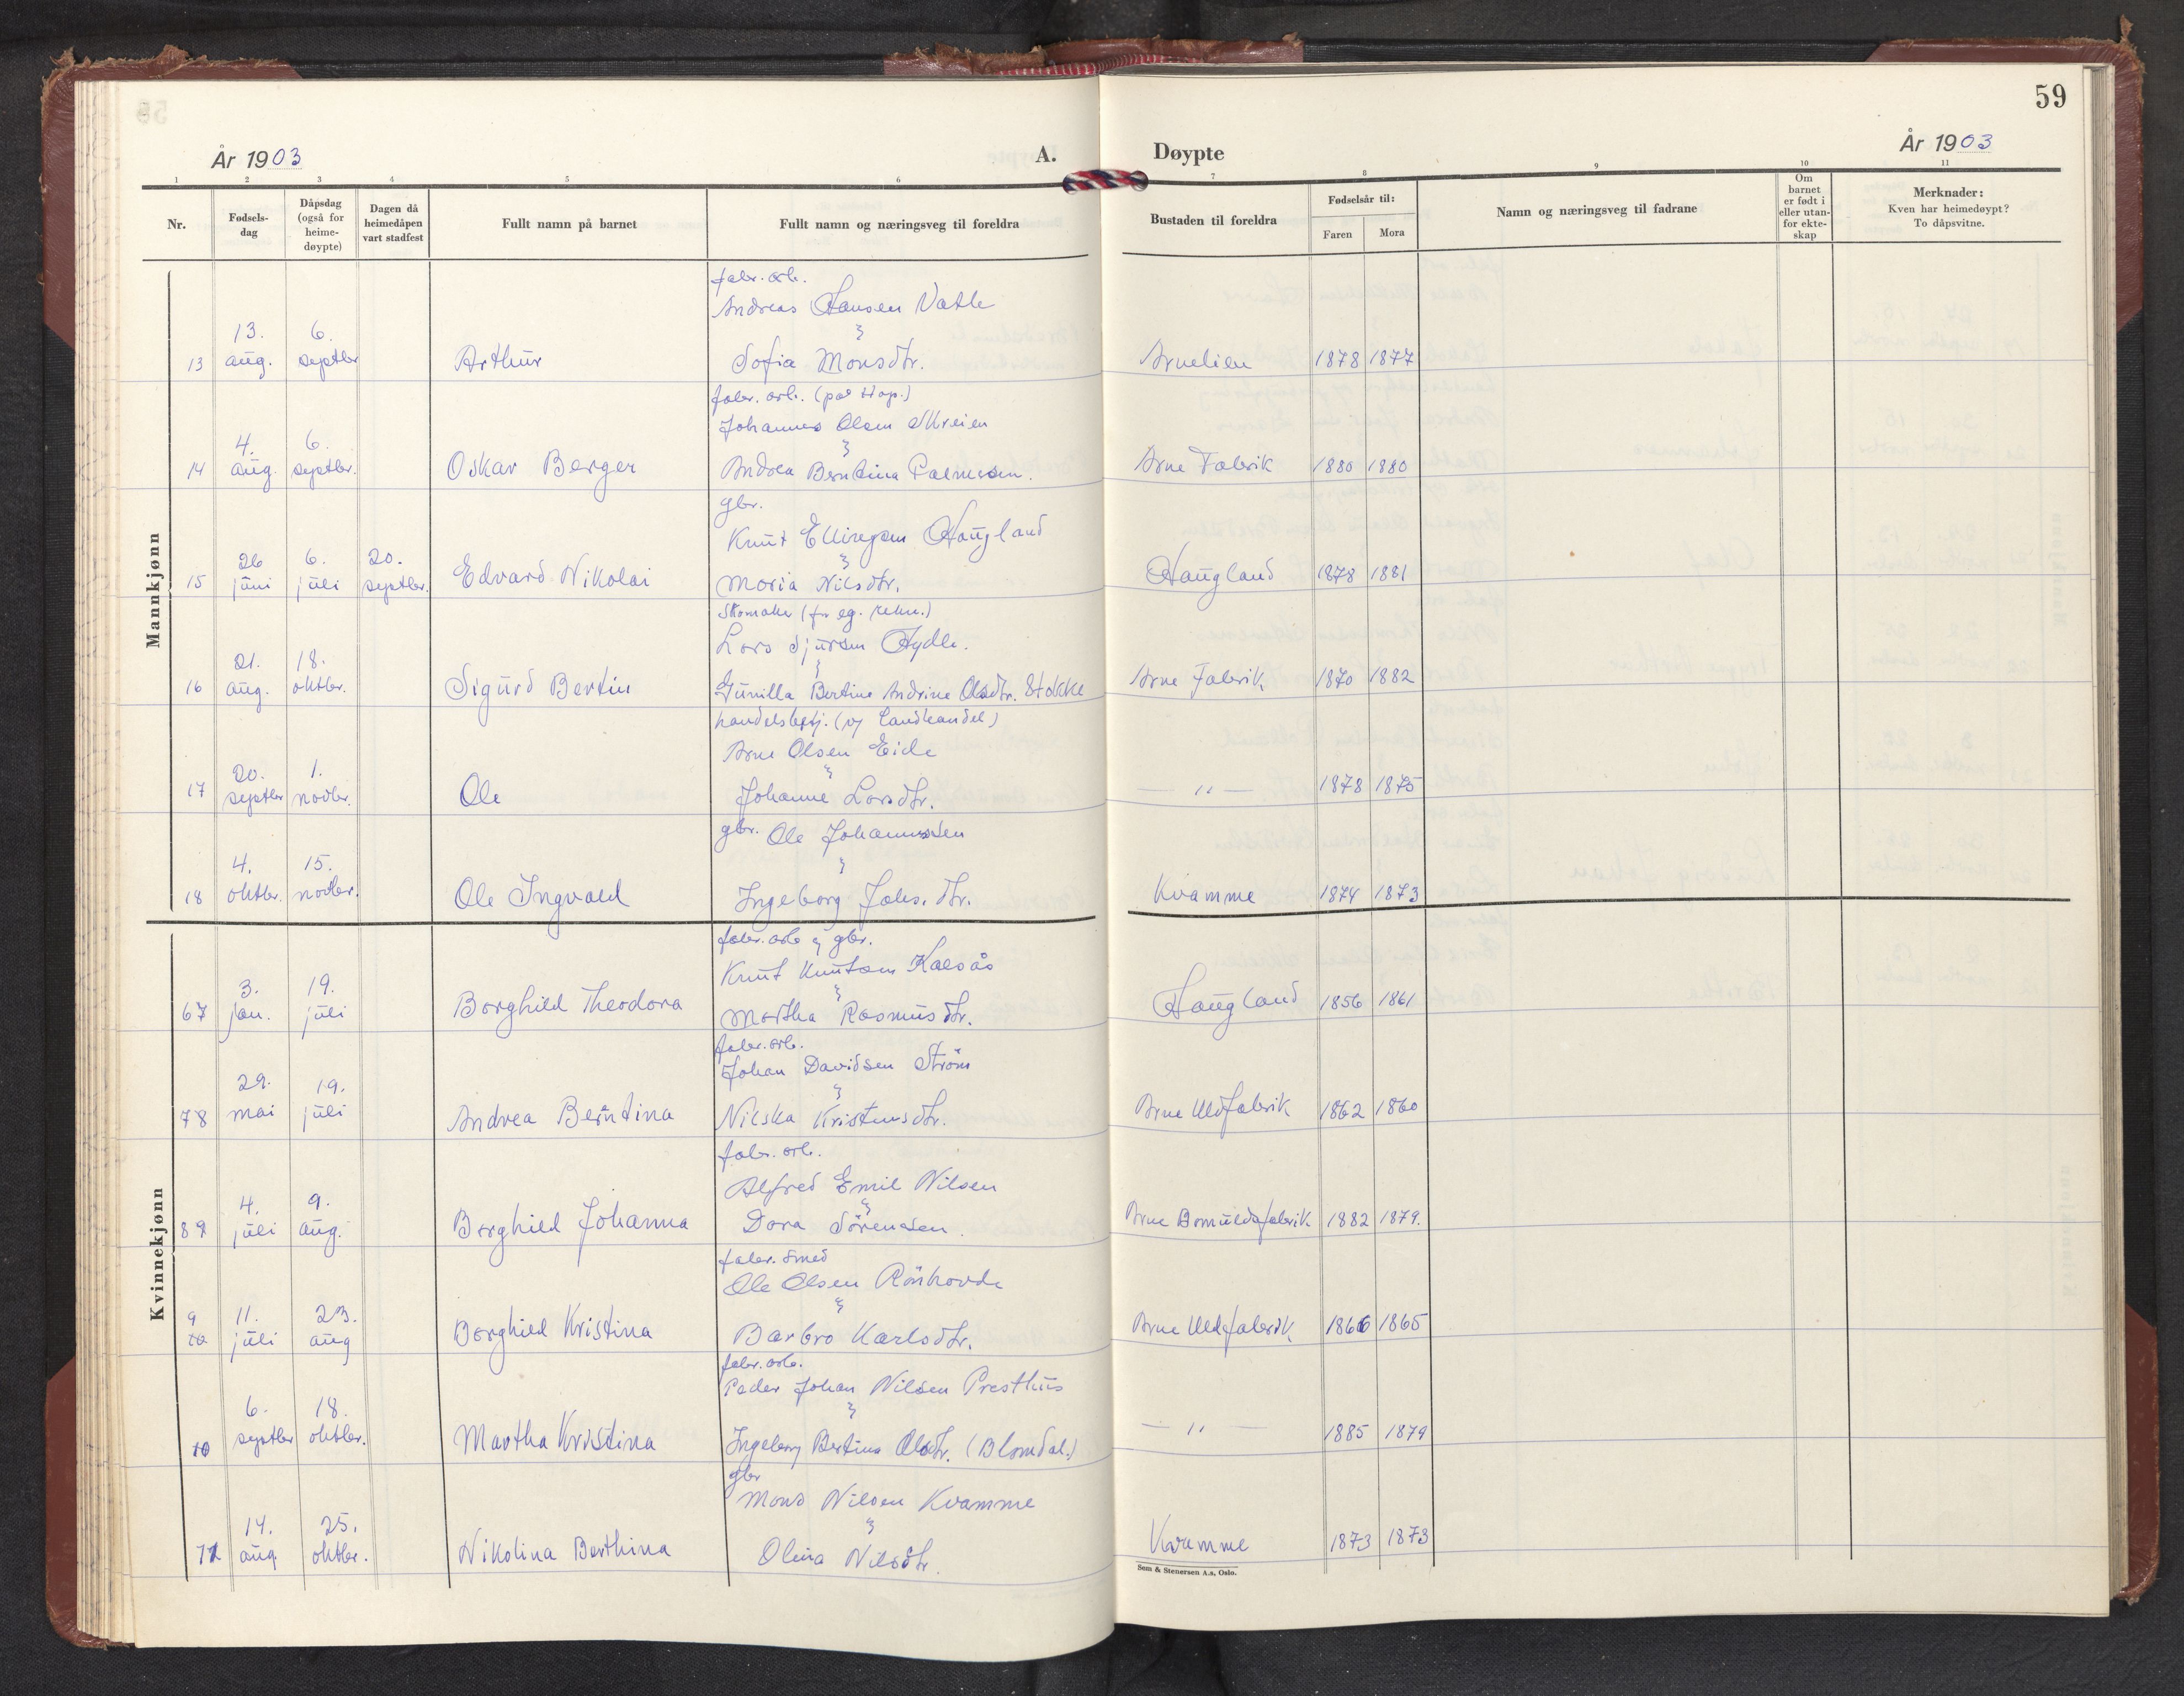 59
År 1903
A.
Døypte
År 1903
1 2 3 4 5 6 7 8 9 10 11
Nr.
Fødsels-
dag
Dåpsdag
(også for
heime-
døypte)
Dagen då
heimedåpen
vart stadfest
Fullt namn på barnet
Fullt namn og næringsveg til foreldra
Bustaden til foreldra
Fødselsår til:
Faren
Mora
Namn og næringsveg til fadrane
Om
barnet
er født i
eller utan-
for ekte-
skap
Merknader:
Kven har heimedøypt?
To dåpsvitne.
Mannkjønn
fabr. arb.
Andreas Hansen Vatle
13. 6.
13 aug. septbr Arthur Sofia Monsdtr. Arnelien 1878 1877
fabr. arb.
Johannes Olsen Skreien
4. 6.
14 aug. septbr. Oskar Berger Andrea Berntina Palmesen. Arne Fabrik 1880 1880
gbr.
Knut Ellingsen Haugland
26 6. 20.
15 juni juli septbr. Edvard Nikolai Maria Nilsdtr. Haugland 1878 1881
Skomaker (for eg. rekn.)
Lars Sjursen Hydle.
21. 18.
16 aug. oktbr. Sigurd Bertin Gunilla Bertine Andrine Olsdtr. Stokke Arne Fabrik 1870 1882
handelsbetj. (v/ landhandel)
Arne Olsen Eide
20. 1.
17 septbr novbr. Ole Johanne Larsdtr. — " — 1878 1875
gbr. Ole Johannessen
4. 15.
18 oktbr. novbr. Ole Ingvald Ingeborg Johs. dtr. Kvamme 1874 1873
Kvinnekjønn
fabr. arb og gbr.
Knut Knutsen Kalsås
3. 19.
67 jan. juli Borghild Theodora Martha Rasmusdtr. Haugland 1856 1861
fabr. arb.
Johan Davidsen Ström
29. 19.
78 mai juli Andrea Berntina Nilska Kristensdtr. Arne Uldfabrik 1862 1860
fabr. arb.
Alfred Emil Nilsen
4. 9.
89 juli aug. Borghild Johanna Dora Sörensen. Arne Bomuldsfabrik 1882 1879.
fabr. smed
Ole Olsen Rönhovde
9 11. 23.
10 juli aug Borghild Kristina Barbro Karlsdtr. Arne Uldfabrik 1866 1865
fabr. arb.
Peder Johan Nilsen Presthus
6. 18.
10 septbr oktbr. Martha Kristina Ingeborg Bertine Olsdtr. (Blomdal.) — " — 1885 1879
gbr
Mons Nilsen Kvamme
14. 25.
11 aug. oktbr. Nikolina Berthina Olina Nilsdtr. Kvamme 1873 1873
Sem & Stenersen A.s, Oslo.